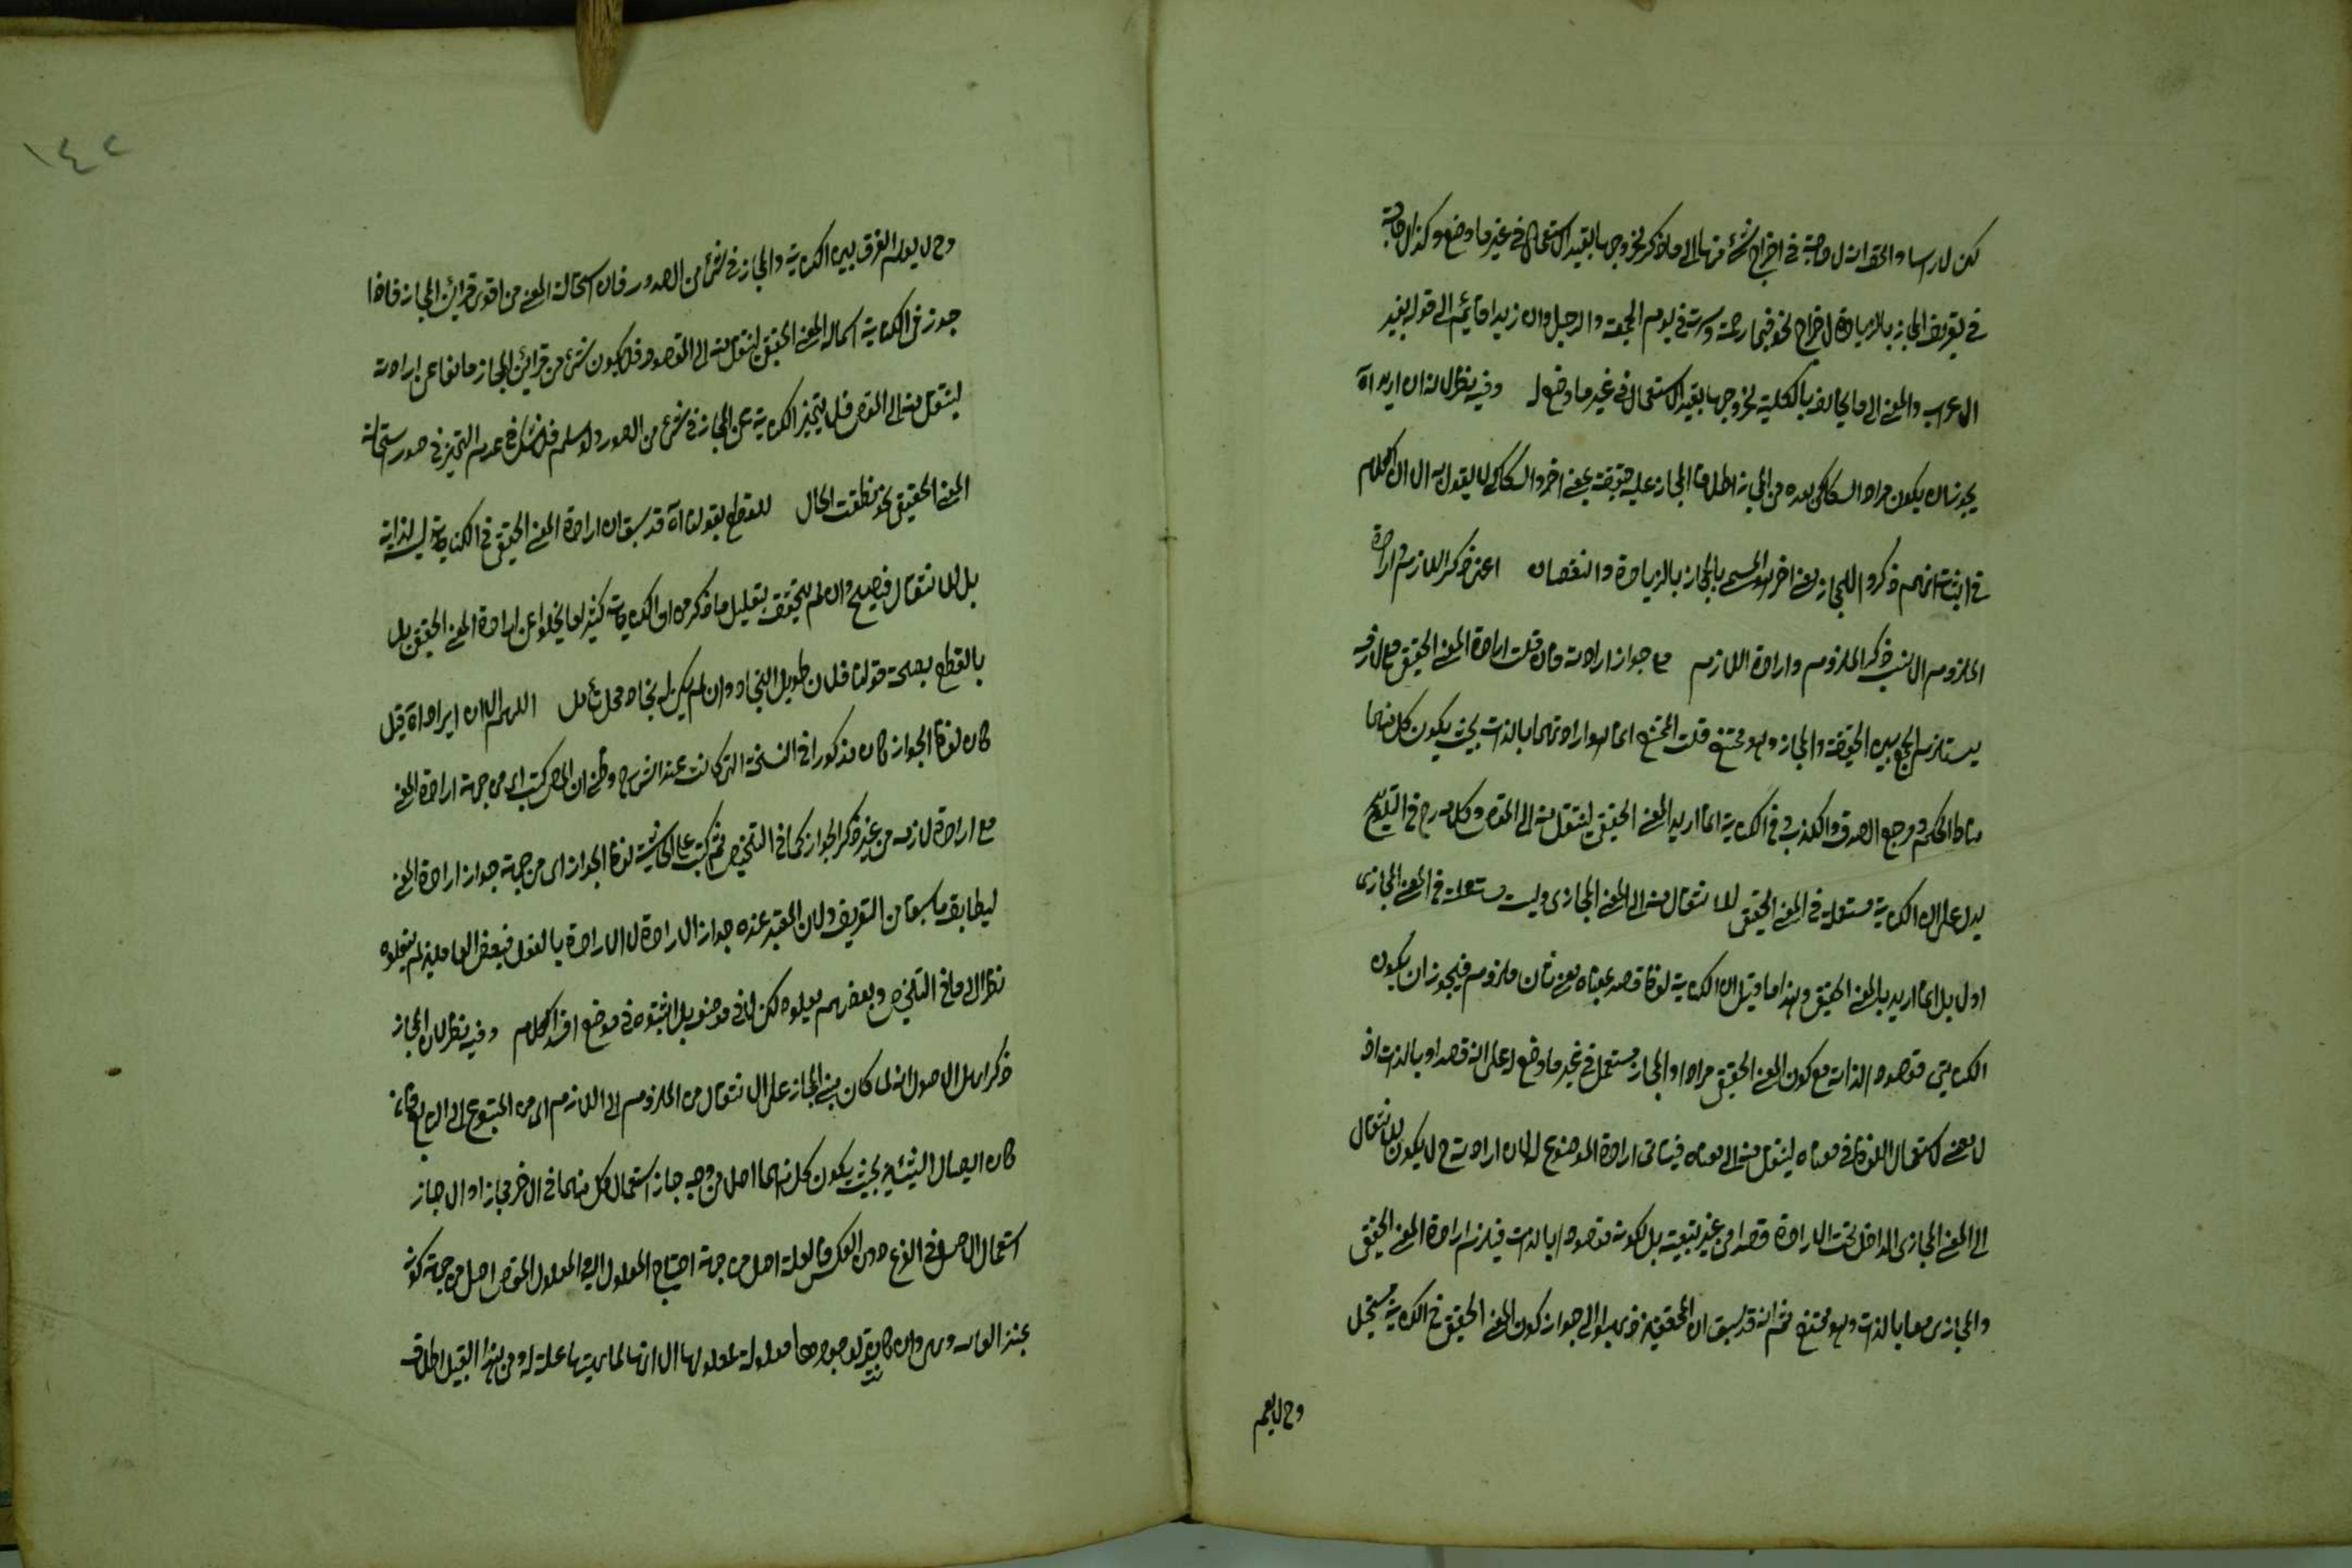 في تعريف المجاز بالزيادة لاخراج نحو فبما رحمة وسرت في يوم الجمعة والرجل وان زيدا قائم الى قوله بغير
الاعراب والمعنى الى ما يخالف بالكلية لخروجها بقيد الاستعمال في غير ما وضع له وفيه نظر لانه ان اريد اه
يجوز ان يكون مراد السكاكي بعده من المجاز اطلاق المجاز عليه حقيقة بمعنى اخر والسكاكي لا يقول به الا ان الكلام
في اثبات انهم ذكروا للمجاز معنى اخر هو المسمى بالمجاز بالزيادة والنقصان اعنى ذكر اللازم وارادة
الملزوم الانسب ذكر الملزوم وارادة اللازم مع جواز ارادته فان قلت ارادة المعنى الحقيقي مع لازمه
يستلزم الجمع بين الحقيقة والمجاز وهو ممتنع قلت الممتنع انما هو ارادتهما بالذات بحيث يكون كل منهما
مناط الحكم ومرجع الصدق والكذب وفي الكناية انما اريد المعنى الحقيقي لينتقل منه الى المقص وكلامه رح في التلويح
يدل على ان الكناية مستعملة في المعنى الحقيقي للانتقال منه الى المعنى المجازى وليست مستعملة في المعنى المجازى
اولا بل انما اريد به المعنى الحقيقي وهذا ما قيل ان الكناية لفظ قصد بمعناه معنى ثان ملزوم فيجوز ان يكون
الكنائى مقصودا لذاته مع كون المعنى الحقيقي مرادا والمجاز مستعمل في غير ما وضع له على انه قصد او بالذات اذ
لا معنى لاستعمال اللفظ في معناه لينتقل منه الى معناه فينافى ارادة الموضوع له لان ارادته ح لا يكون للانتقال
الى المعنى المجازى الداخل تحت الارادة قصدا من غير تبعية بل لكونه مقصودا بالذات فيلزم ارادة المعنى الحقيقي
والمجازى معا بالذات وهو ممتنع ثم انه قد سبق ان المحققين ذهبوا الى جواز كون المعنى الحقيقي في الكناية مستحيل
١٤٢
وح لا يعلم الفرق بين الكناية والمجاز في شئ من الصور فان استحالة المعنى من اقوى قرائن المجاز فاذا
جوز في الكناية استحالة المعنى الحقيقي لينتقل منه الى المقصود فلا يكون شئ من قرائن المجاز مانعا عن ارادته
لينتقل منه الى المقص فلا يتميز الكناية عن المجاز في شئ من الصور ولو سلم فلا شك في عدم التميز في صور استحالة
المعنى الحقيقي نحو نطقت الحال للقطع بقولنا اه قد سبق ان ارادة المعنى الحقيقي في الكناية ليس لذاته
بل للانتقال فيصح وان لم يتحقق بتعليل ما ذكر من ان الكناية كثيرا ما يخلو عن ارادة المعنى الحقيقي بل
بالقطع بصحة قولنا فلان طويل النجاد وان لم يكن له نجاد محل تأمل اللهم الا ان ايراده اه قيل
كان لفظ الجواز كان مذكورا في النسخة التى كانت عند الشرح وظن ان المص كتب اى من جهة ارادة المعنى
مع ارادة لازمه من غير ذكر الجواز كما في التلخيص ثم كتب على الحاشية لفظ الجواز اى من جهة جواز ارادة المعنى
ليطابق ما سبق من التعريف ولان المعتبر عنده جواز الارادة لا الارادة بالفعل فبعض الناقلين لم ينقلوه
نظرا الى ما في التلخيص وبعضهم نقلوه لكن لا في موضعه بل اثبتوه في موضع افسد الكلام وفيه نظر لان المجاز
ذكر اهل الاصول انه لما كان مبنى المجاز على الانتقال من الملزوم الى اللازم اى من المتبوع الى التابع فان
كان اتصال الشيئين بحيث يكون كل منهما اصل من وجه جاز استعمال كل منهما في الاخر مجازا والا جاز
استعمال الاصل في الفرع دون العكس فالعلة اصل من جهة احتياج المعلول اليه والمعلول المقص اصل من جهة كونه
وح لا يعلم